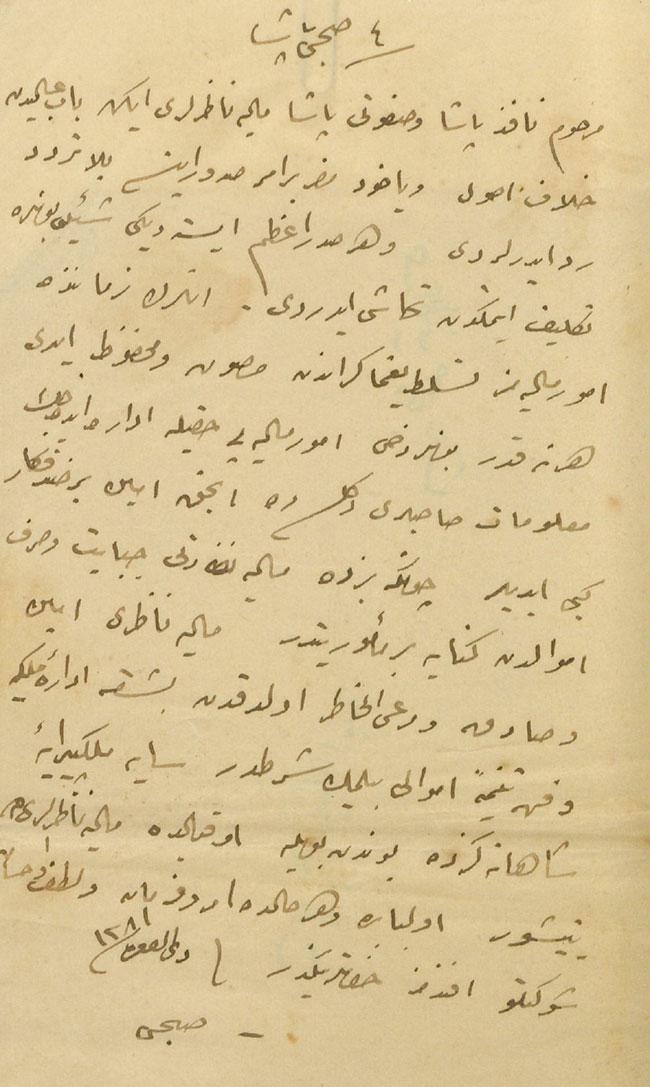 ٤ صبحی پاشا
مرحوم نافذ پاشا وصفوتی پاشا مالیه ناظرلری ایکن باب عالیدن
خلاف اصول ویاخود مضر بر امر صدور ایتسه بلا تردد
رد ایدرلردی وهر صدر اعظم ایستدیکی شیئی بونلره
تکلیف ایتمکدن تحاشی ایدردی انلرك زماننده
امور مالیه مز تسلط یغماکراندن مصون ومحفوظ ایدی
هر نه قدر بونلر دخی امور مالیه یی حقیله اداره ایده جك
معلومات صاحبلری دکلسه ده انجق امین بر خزینه دار
کبی ایدیلر چونکه بزده مالیه نظارتی جبایت وصرف
اموالدن کنایه بر مأموریتدر مالیه ناظری امین
وصادق ومرعی الخاطر اولدقدن بشقه اداره ملکیه
وفن تنمیه اموالی بیلمك شرطدر سایه ملکپیرایهٔ
شاهانه کزده بوندن بویله اوقولده مالیه ناظرلری
یتیشور اولبابده وهر حالده امر وفرمان ولطف واحسان
شوکتلو افندمز حضرتلرینکدر ١٢٨١
صبحی